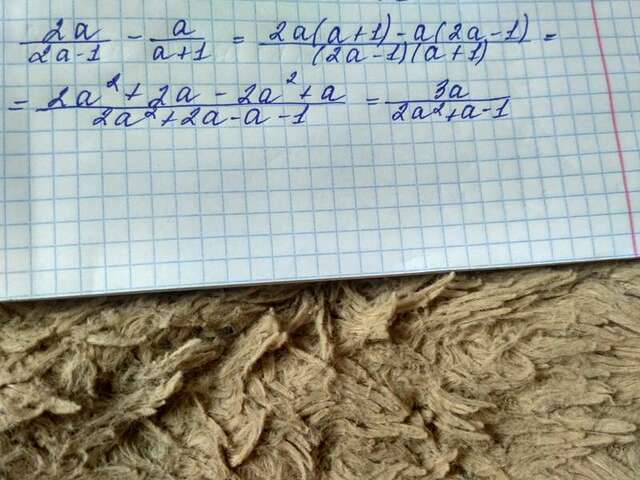 2a/(2a-1) - a/(a+1) = (2a(a+1)-a(2a-1))/((2a-1)(a+1)) =
= (2a²+2a-2a²+a)/(2a²+2a-a-1) = 3a/(2a²+a-1)